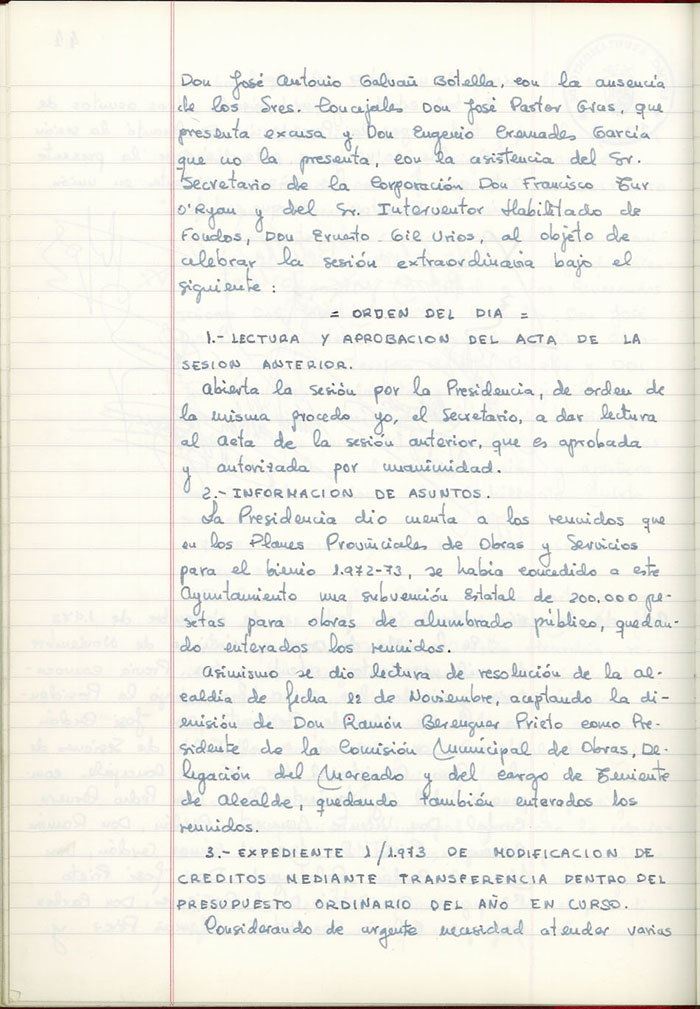 Don José Antonio Galvañ Botella, con la ausencia
de los Sres. Concejales Don José Pastor Gras, que
presenta excusa y Don Eugenio Cremades García
que no la presenta, con la asistencia del Sr.
Secretario de la Corporación Don Francisco Tur
O'Ryan y del Sr. Interventor Habilitado de
Fondos, Don Ernesto Gil Urios, al objeto de
celebrar la sesión extraordinaria bajo el
siguiente :
= ORDEN DEL DIA =
1.- LECTURA Y APROBACION DEL ACTA DE LA
SESION ANTERIOR.
Abierta la sesión por la Presidencia, de orden de
la misma procedo yo, el Secretario, a dar lectura
al acta de la sesión anterior, que es aprobada
y autorizada por unanimidad.
2.- INFORMACION DE ASUNTOS.
La Presidencia dio cuenta a los reunidos que
en los Planes Provinciales de Obras y Servicios
para el bienio 1.972-73, se había concedido a este
Ayuntamiento una subvención Estatal de 200.000 pe-
setas para obras de alumbrado público, quedan-
do enterados los reunidos.
Asimismo se dio lectura de resolución de la al-
caldía de fecha 12 de Noviembre, aceptando la di-
misión de Don Ramón Berenguer Prieto como Pre-
sidente de la Comisión Municipal de Obras, De-
legación del Mercado y del cargo de Teniente
de Alcalde, quedando también enterados los
reunidos.
3.- EXPEDIENTE 1/1.973 DE MODIFICACION DE
CREDITOS MEDIANTE TRANSFERENCIA DENTRO DEL
PRESUPUESTO ORDINARIO DEL AÑO EN CURSO.
Considerando de urgente necesidad atender varias